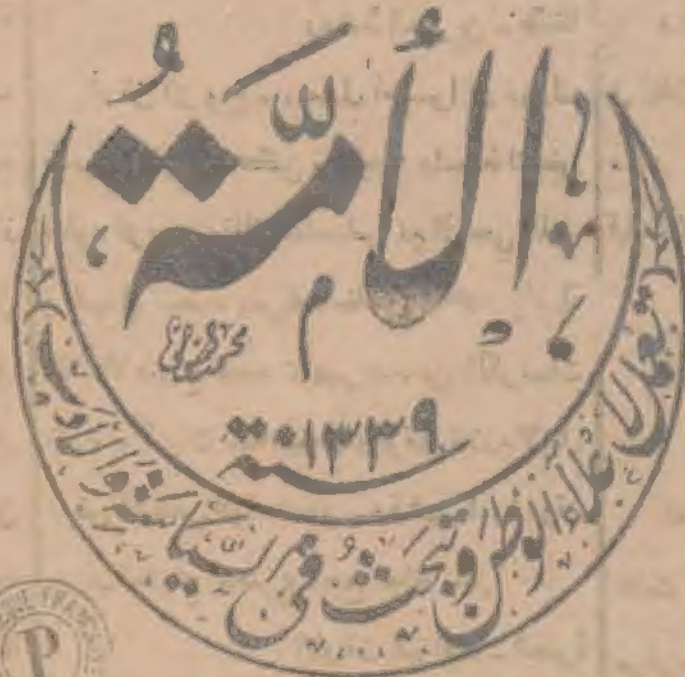 الأُمَّةُ
سنة ١٣٣٩
تعمل لاعلاء الوطن وتبحث في السياسة والأدب
P